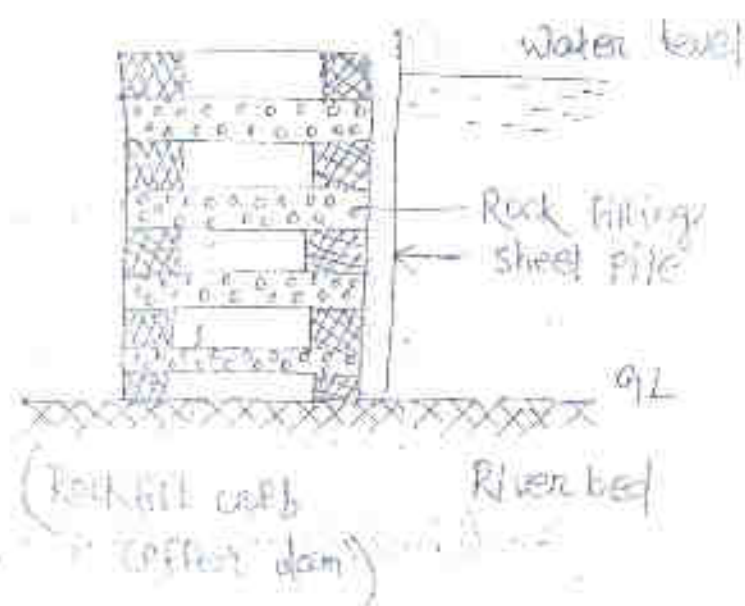 Water level
Rock filling
sheet pile
GL
River bed
(Rockfill crib
coffer dam)